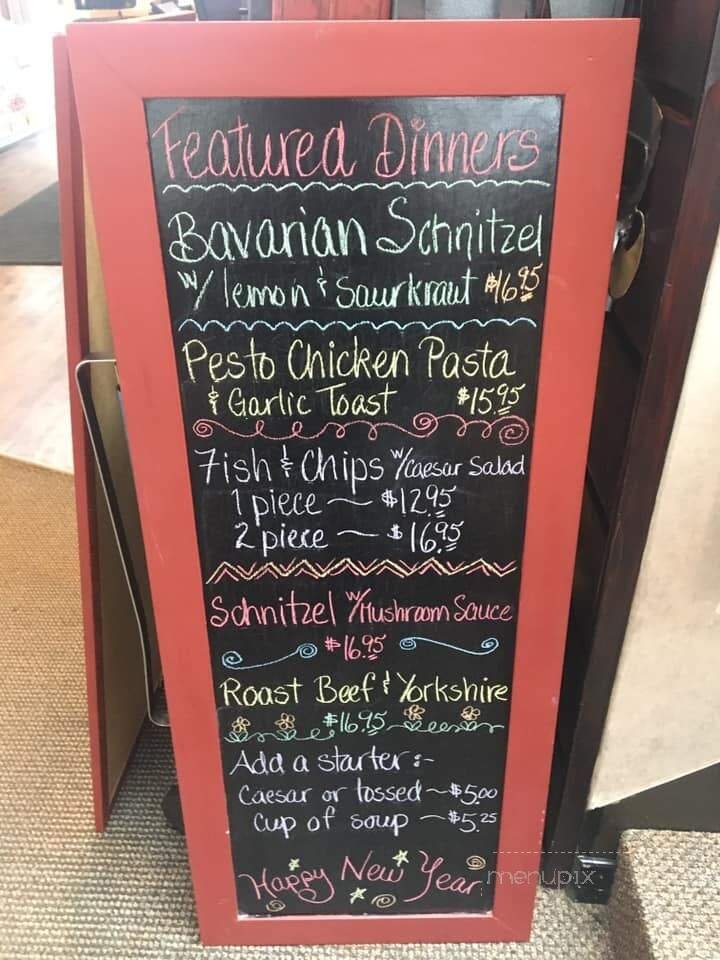 Featured Dinners
Bavarian Schnitzel
w/ lemon & Saurkraut $16.95
Pesto Chicken Pasta
& Garlic Toast $15.95
Fish & Chips w/caesar Salad
1 piece — $12.95
2 piece — $16.95
Schnitzel w/Mushroom Sauce
$16.95
Roast Beef & Yorkshire
$16.95
Add a starter :-
Caesar or tossed — $5.00
Cup of soup — $5.25
Happy New Year
menupix